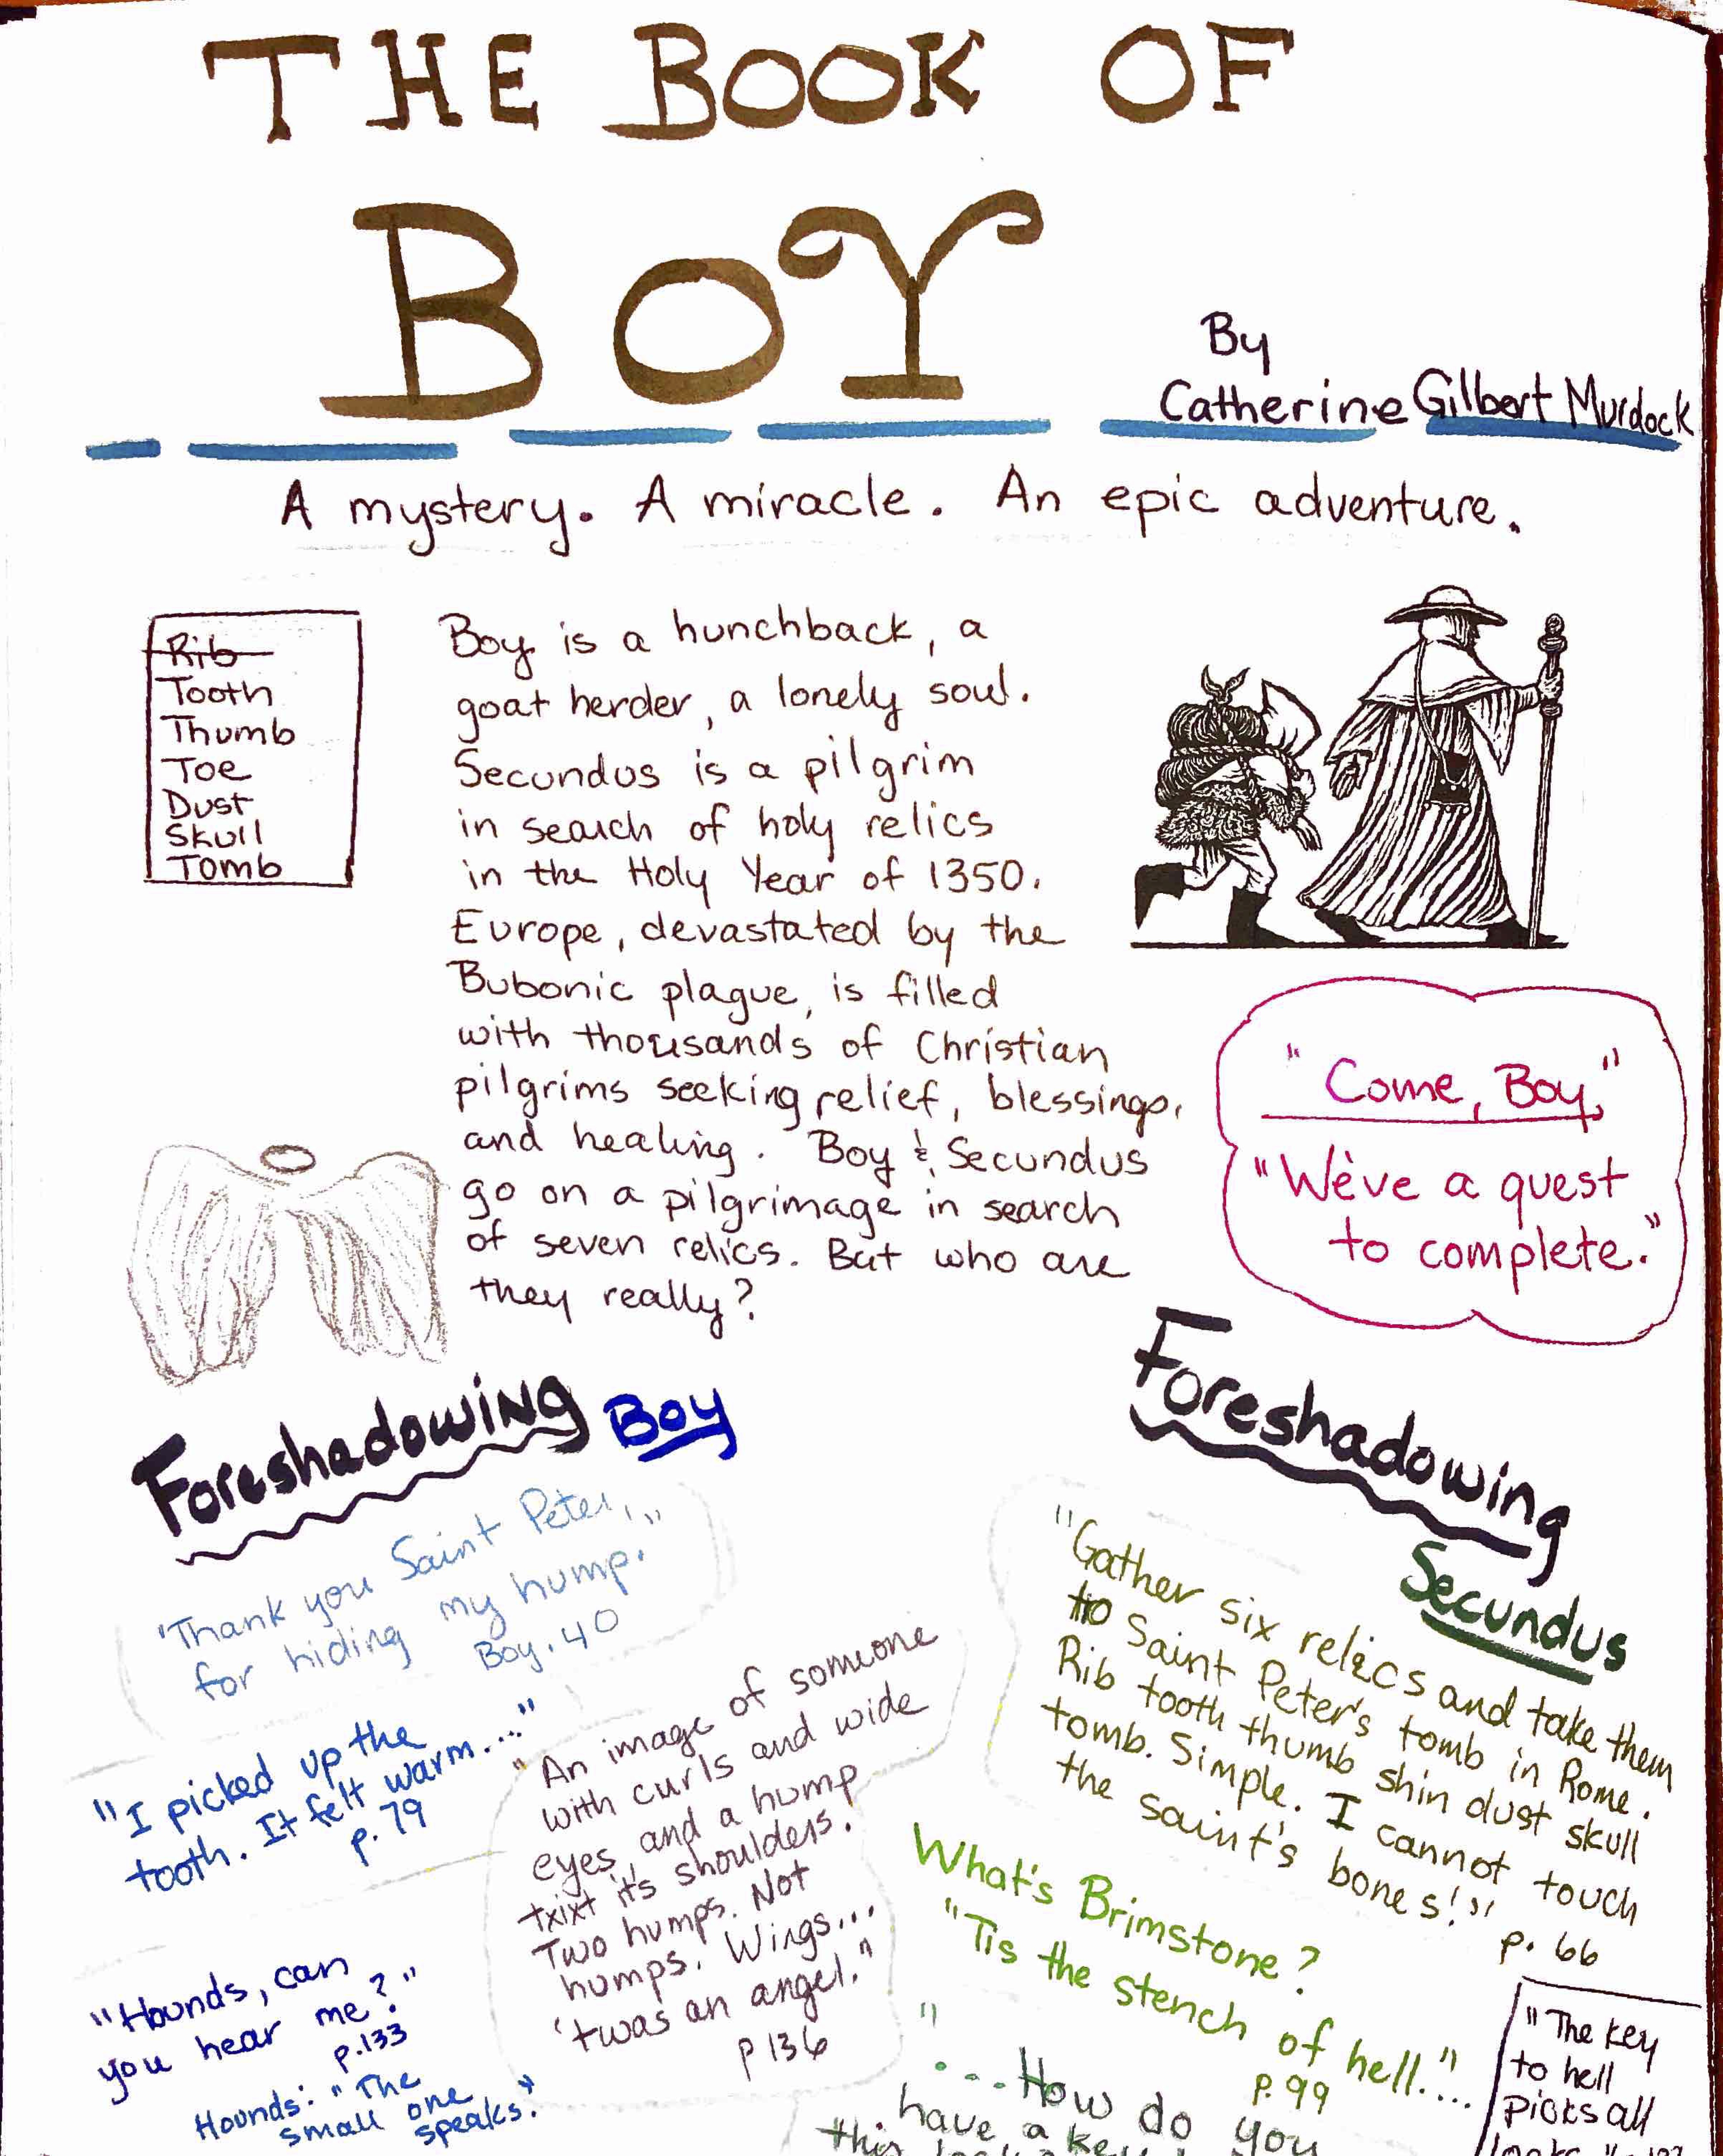 THE BOOK OF
BOY
By
Catherine Gilbert Murdock
A mystery. A miracle. An epic adventure.
Rib
Tooth
Thumb
Toe
Dust
Skull
Tomb
Boy is a hunchback, a
goat herder, a lonely soul.
Secundus is a pilgrim
in search of holy relics
in the Holy Year of 1350.
Europe, devastated by the
Bubonic plague, is filled
with thousands of Christian
pilgrims seeking relief, blessings,
and healing. Boy & Secundus
go on a pilgrimage in search
of seven relics. But who are
they really?
"Come, Boy,"
"We've a quest
to complete."
Foreshadowing Boy
"Thank you Saint Peter,"
for hiding my hump.
Boy. 40
"I picked up the
tooth. It felt warm...."
p. 79
"Hounds, can
you hear me?"
p. 133
Hounds: "The
small one
speaks."
"An image of someone
with curls and wide
eyes and a hump
txixt it's shoulders.
Two humps. Not
humps. Wings...
'twas an angel."
p 136
Foreshadowing
Secundus
"Gather six relics and take them
to Saint Peter's tomb in Rome.
Rib tooth thumb shin dust skull
tomb. Simple. I cannot touch
the saint's bones!"
p. 66
What's Brimstone?
"Tis the stench of hell."...
p. 99
"
...How do you
have a key
this
"The key
to hell
picks all